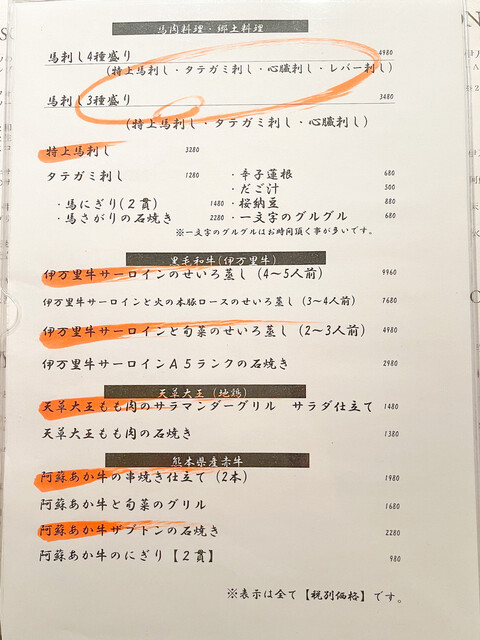 馬肉料理・郷土料理
馬刺し4種盛り 4980
(特上馬刺し・タテガミ刺し・心臓刺し・レバー刺し)
馬刺し3種盛り 3480
(特上馬刺し・タテガミ刺し・心臓刺し)
特上馬刺し 3280
タテガミ刺し 1280
・辛子蓮根 680
・だご汁 500
・馬にぎり(2貫) 1480
・桜納豆 880
・馬さがりの石焼き 2280
・一文字のグルグル 680
※一文字のグルグルはお時間頂く事が多いです。
黒毛和牛(伊万里牛)
伊万里牛サーロインのせいろ蒸し(4〜5人前) 9960
伊万里牛サーロインと火の本豚ロースのせいろ蒸し(3〜4人前) 7680
伊万里牛サーロインと旬菜のせいろ蒸し(2〜3人前) 4980
伊万里牛サーロインA5ランクの石焼き 2980
天草大王(地鶏)
天草大王もも肉のサラマンダーグリル サラダ仕立て 1480
天草大王もも肉の石焼き 1380
熊本県産赤牛
阿蘇あか牛の串焼き仕立て(2本) 1980
阿蘇あか牛と旬菜のグリル 1680
阿蘇あか牛ザブトンの石焼き 2280
阿蘇あか牛のにぎり【2貫】 980
※表示は全て【税別価格】です。